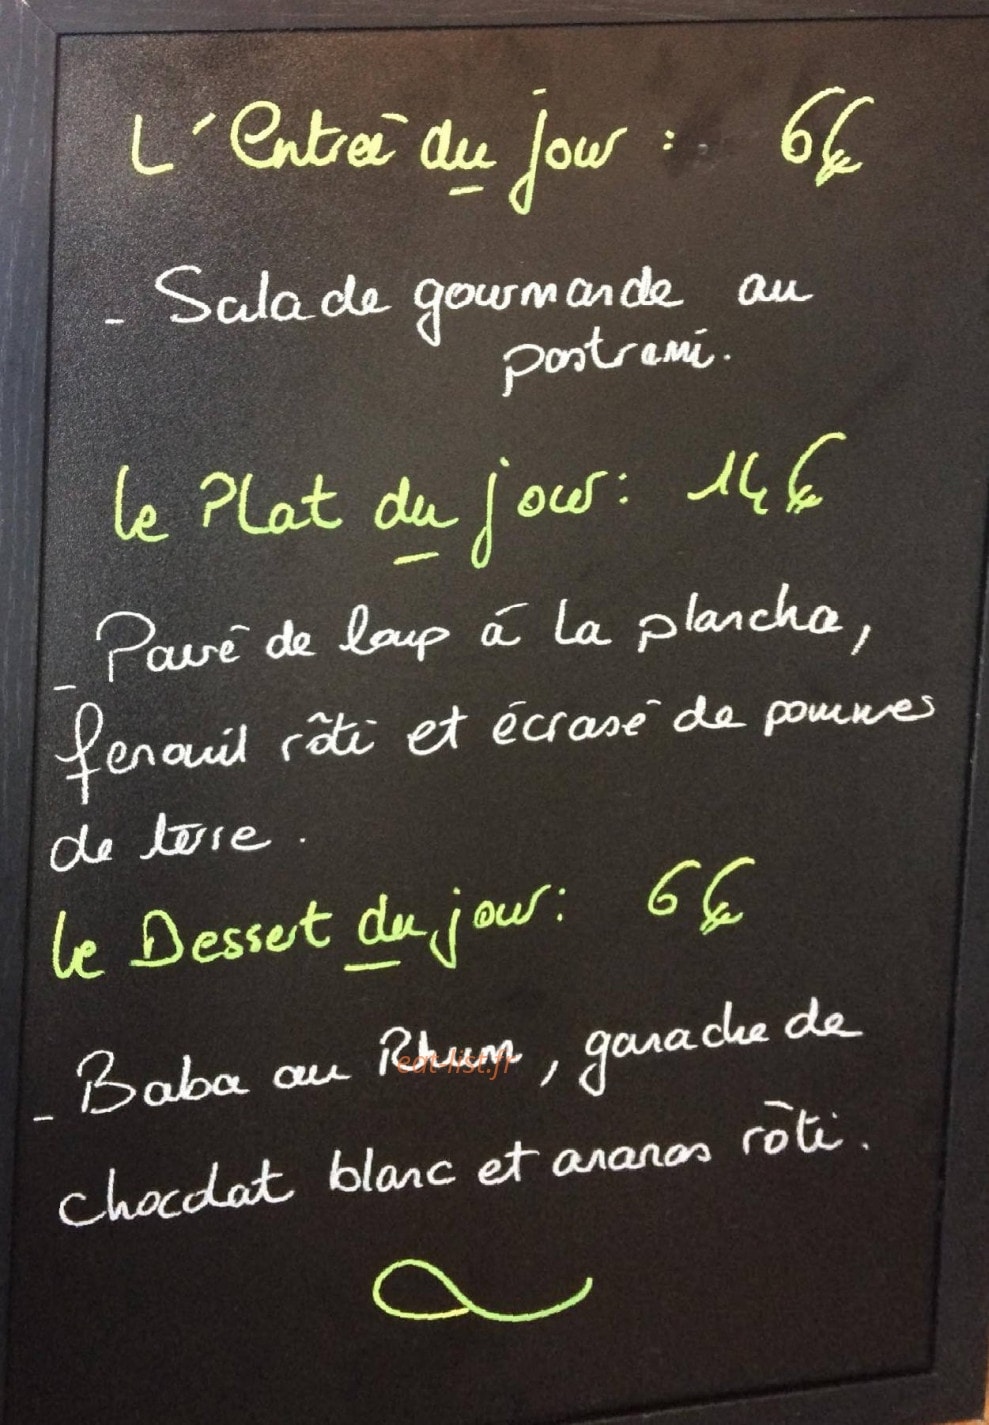 L'Entrée du jour : 6€
- Salade gourmande au
pastrami.
Le Plat du jour : 14€
- Pavé de loup à la plancha,
fenouil rôti et écrasé de pommes
de terre.
Le Dessert du jour : 6€
- Baba au Rhum, ganache de
eat-list.fr
chocolat blanc et ananas rôti.